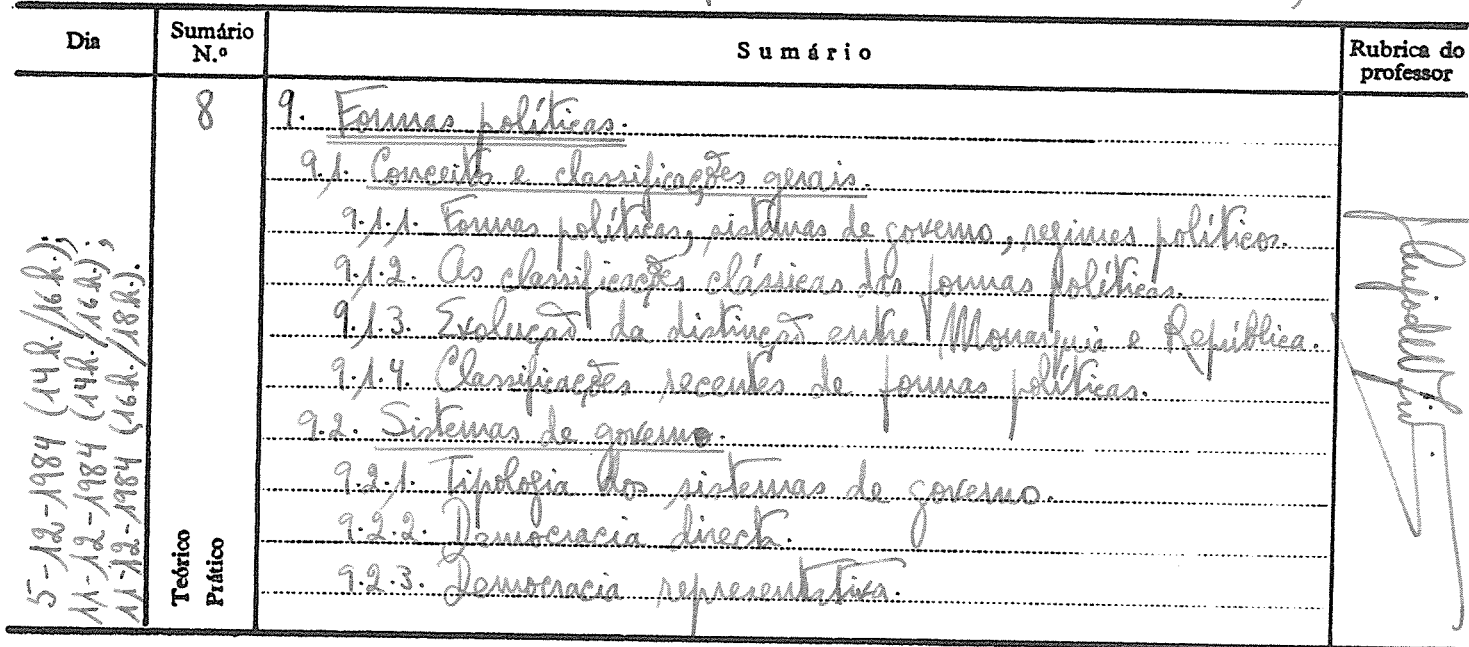 Dia
Sumário N.º
Sumário
Rubrica do professor
5-12-1984 (14h./16h.);
11-12-1984 (14h./16h.);
11-12-1984 (16h./18h.).
8
Teórico
Prático
9. Formas políticas.
9.1. Conceito e classificações gerais.
9.1.1. Formas políticas, sistemas de governo, regimes políticos.
9.1.2. As classificações clássicas das formas políticas.
9.1.3. Evolução da distinção entre Monarquia e República.
9.1.4. Classificações recentes de formas políticas.
9.2. Sistemas de governo.
9.2.1. Tipologia dos sistemas de governo.
9.2.2. Democracia directa.
9.2.3. Democracia representativa.